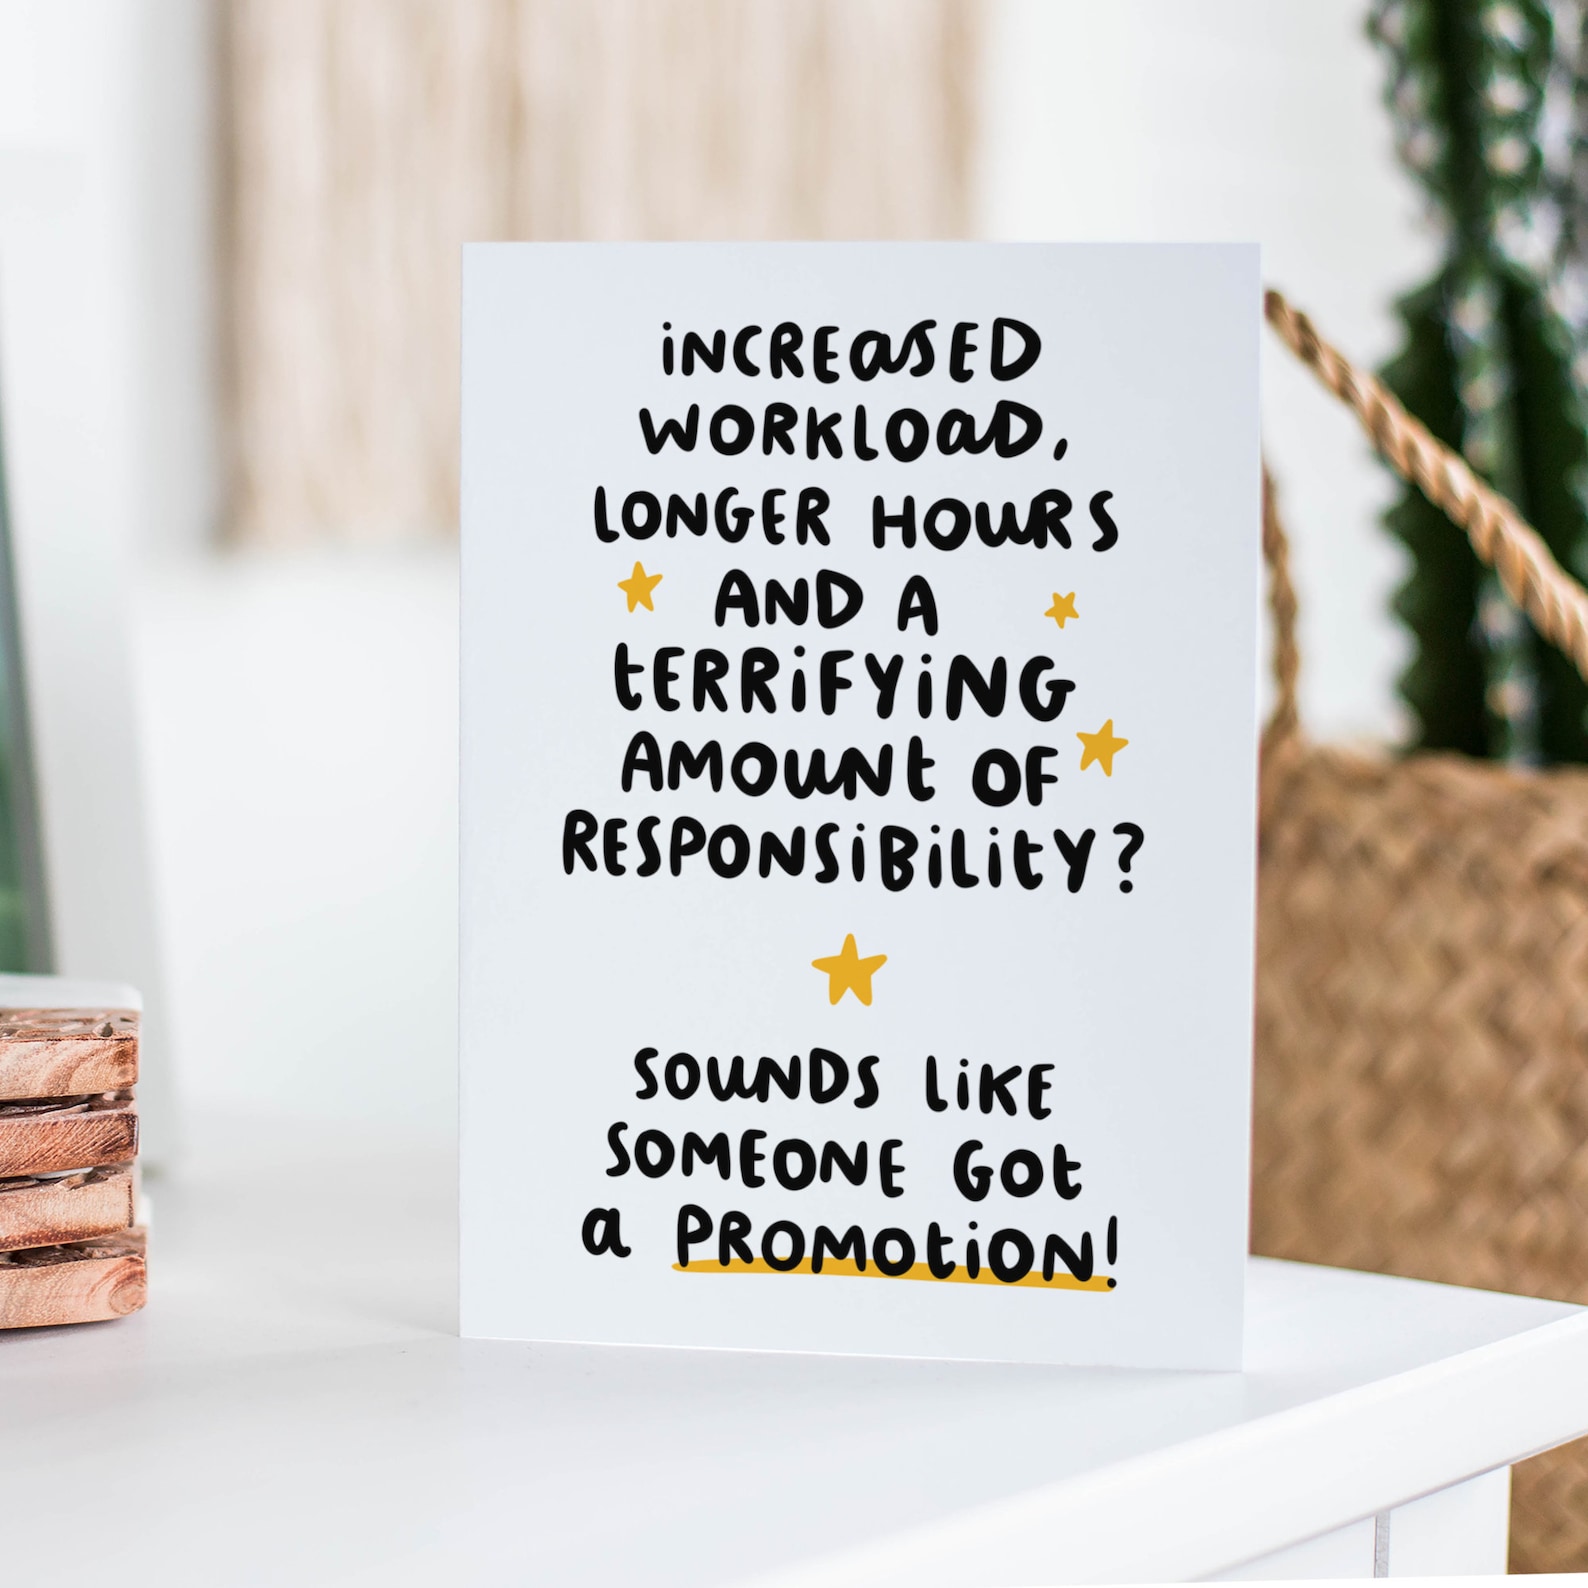 iNCREaSED
WORKLOaD,
LONGER HOURS
AND A
tERRiFYiNG
AMOUNt OF
RESPONSiBiLitY?
SOUNDS LiKE
SOMEONE GOt
a PROMOtiON!